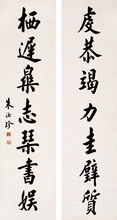 虔恭竭力圭璧質
栖遲皋志琴書娛
朱汝珍